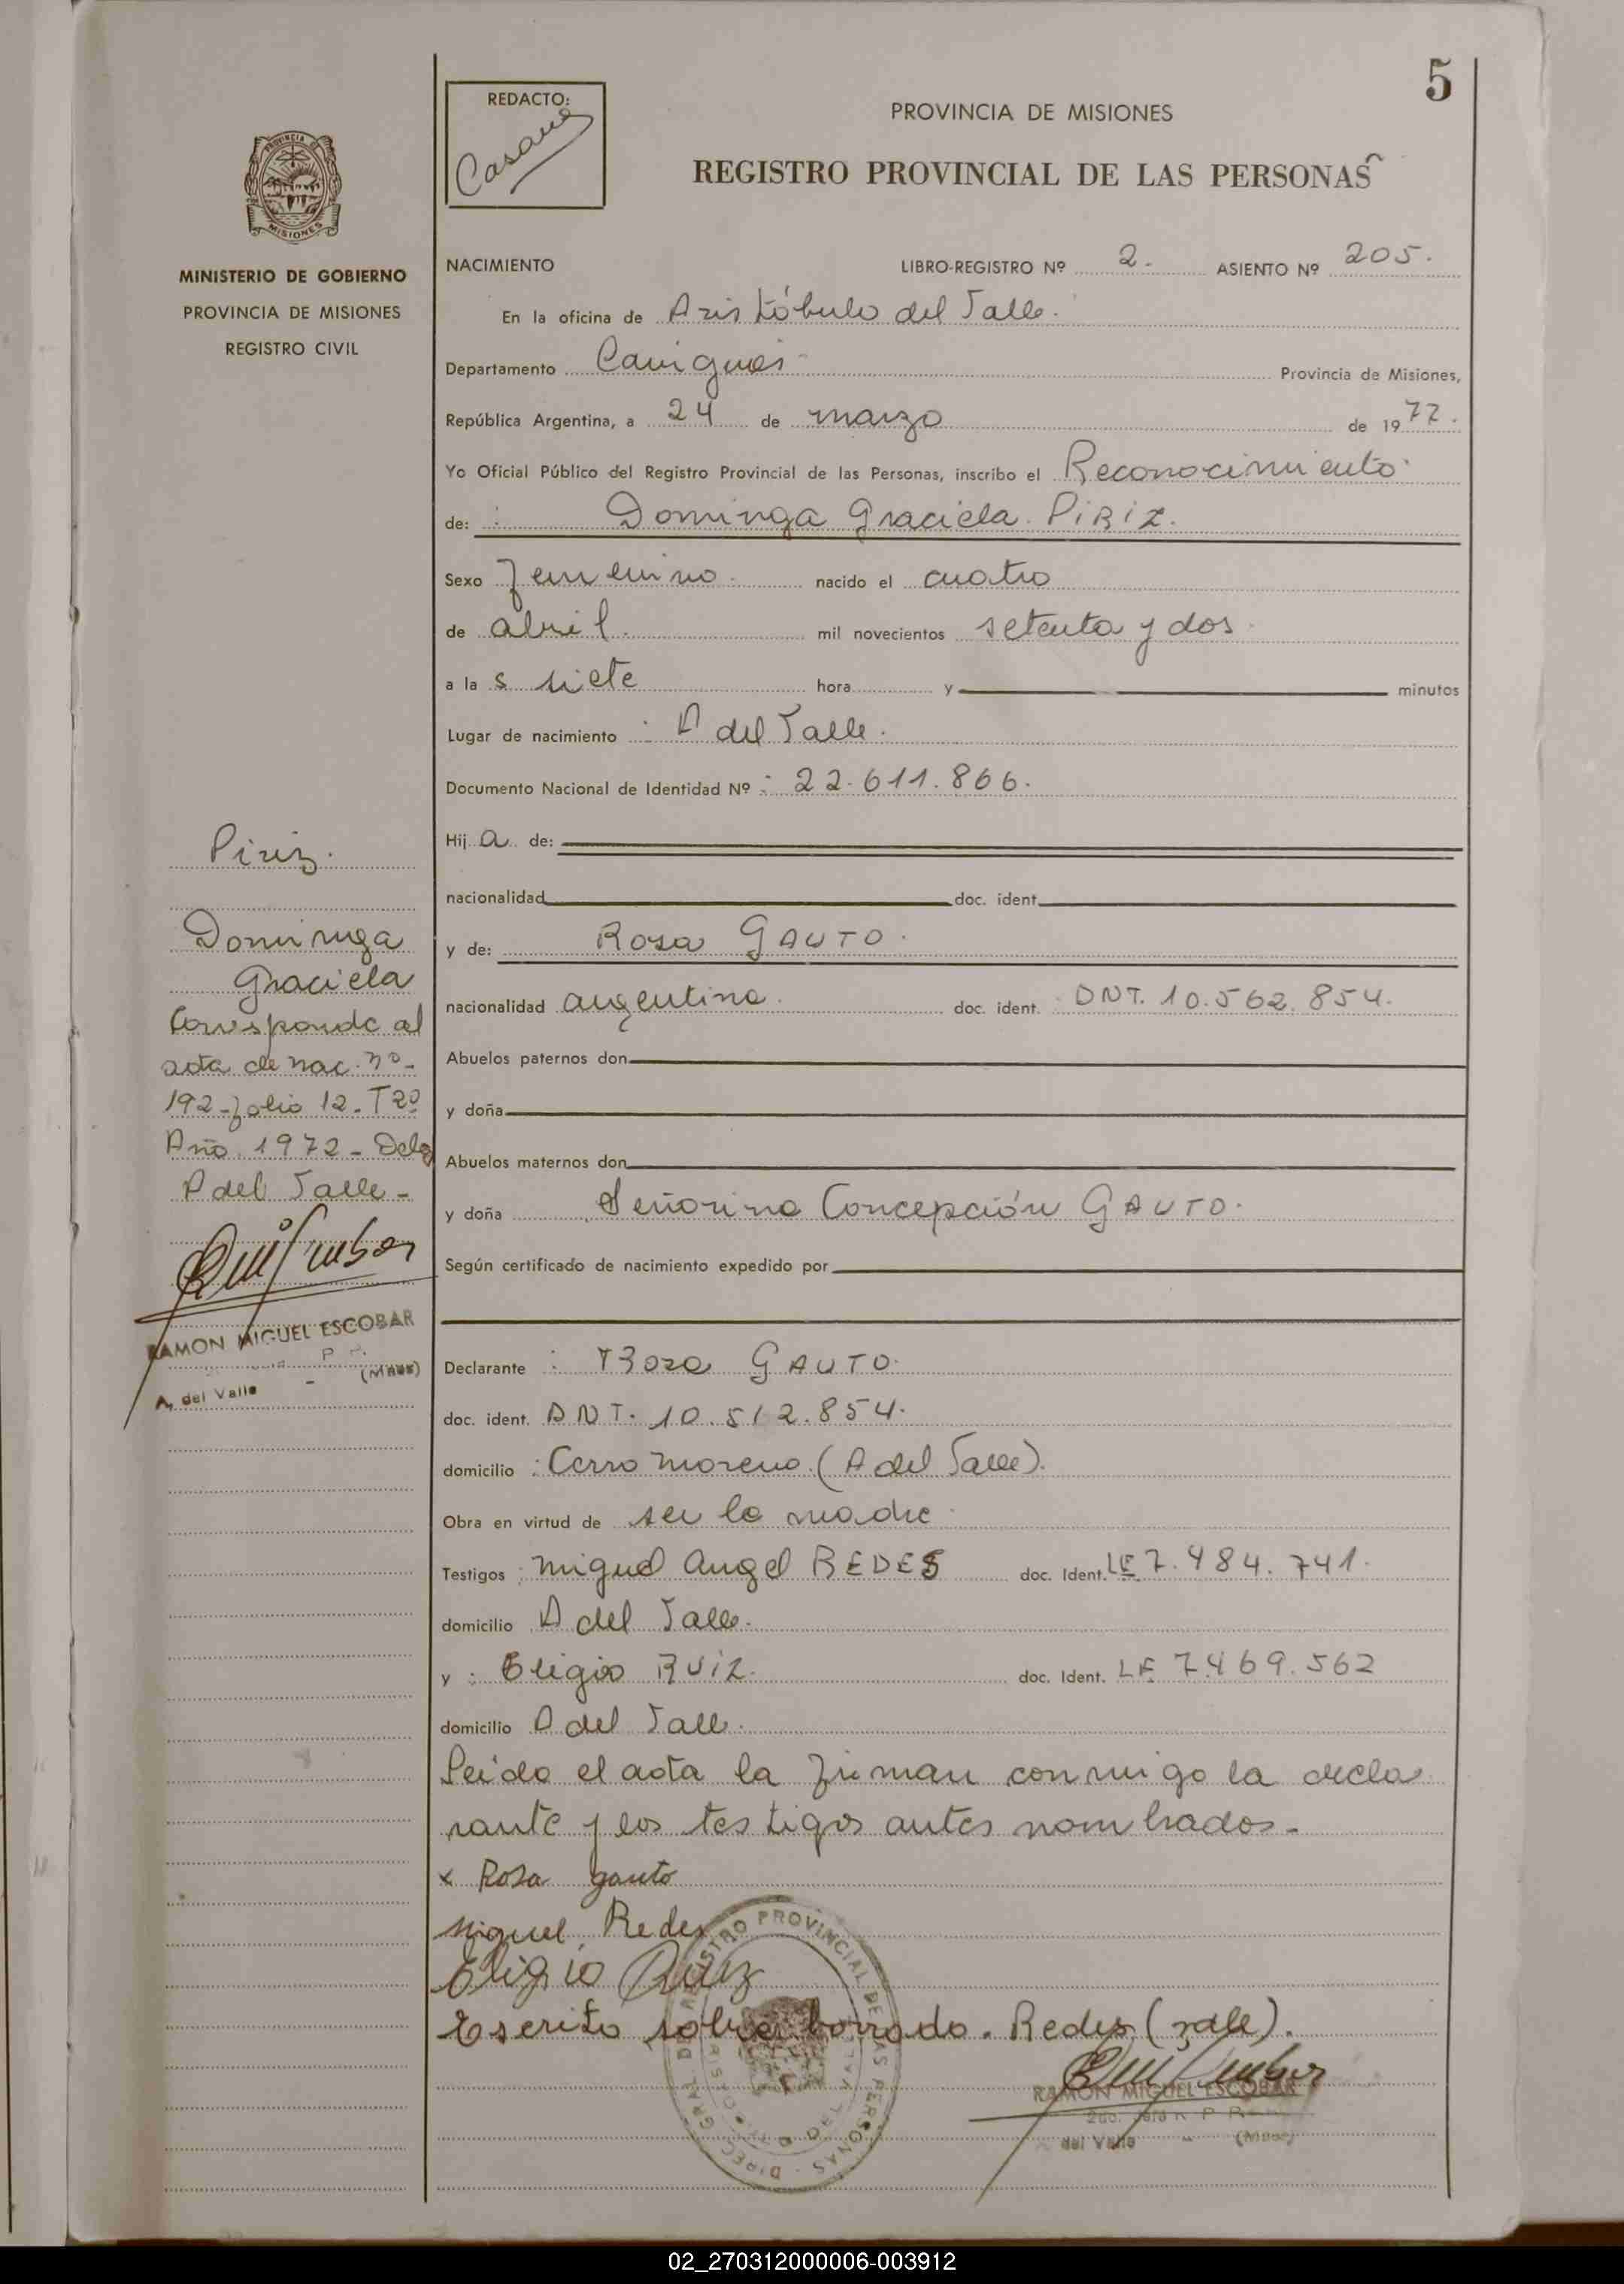 5
REDACTO:
Casano
PROVINCIA DE MISIONES
REGISTRO PROVINCIAL DE LAS PERSONAS
PROVINCIA DE
MISIONES
MINISTERIO DE GOBIERNO
PROVINCIA DE MISIONES
REGISTRO CIVIL
NACIMIENTO LIBRO-REGISTRO Nº 2. ASIENTO Nº 205.
En la oficina de Aristóbulo del Valle.
Departamento Cainguás Provincia de Misiones,
República Argentina, a 24 de marzo de 1977.
Yo Oficial Público del Registro Provincial de las Personas, inscribo el Reconocimiento
de: Dominga Graciela PIRIZ.
Sexo Femenino nacido el cuatro
de abril mil novecientos setenta y dos
a las siete hora y minutos
Lugar de nacimiento A del Valle.
Documento Nacional de Identidad Nº: 22.611.866.
Hija de:
nacionalidad doc. ident.
y de: Rosa GAUTO.
nacionalidad argentina. doc. ident. DNT. 10.562.854.
Abuelos paternos don
y doña
Abuelos maternos don
y doña Señorina Concepción GAUTO.
Según certificado de nacimiento expedido por
Declarante: Rosa GAUTO.
doc. ident. DNT. 10.512.854.
domicilio: Cerro Moreno (A del Valle).
Obra en virtud de ser la madre
Testigos: Miguel Angel REDES doc. Ident. LE 7.484.741.
domicilio A del Valle.
y: Eligio RUIZ. doc. Ident. LE 7.469.562
domicilio A del Valle.
Leída el acta la firman conmigo la decla
rante y los testigos antes nombrados.-
x Rosa gauto
Miguel Redes
Eligio Ruiz
Escrito sobre borrado. Redes (vale).
RAMON MIGUEL ESCOBAR
del Valle - (Mnes)
REGISTRO PROVINCIAL DE LAS PERSONAS - DIREC. GRAL. DEL
Piriz.
Dominga
Graciela
Corresponde al
acta de nac. nº-
192-folio 12-Tº2º
Año 1972- Deleg
A del Valle-
RAMON MIGUEL ESCOBAR
A. del Valle - (Mnes)
02_270312000006-003912